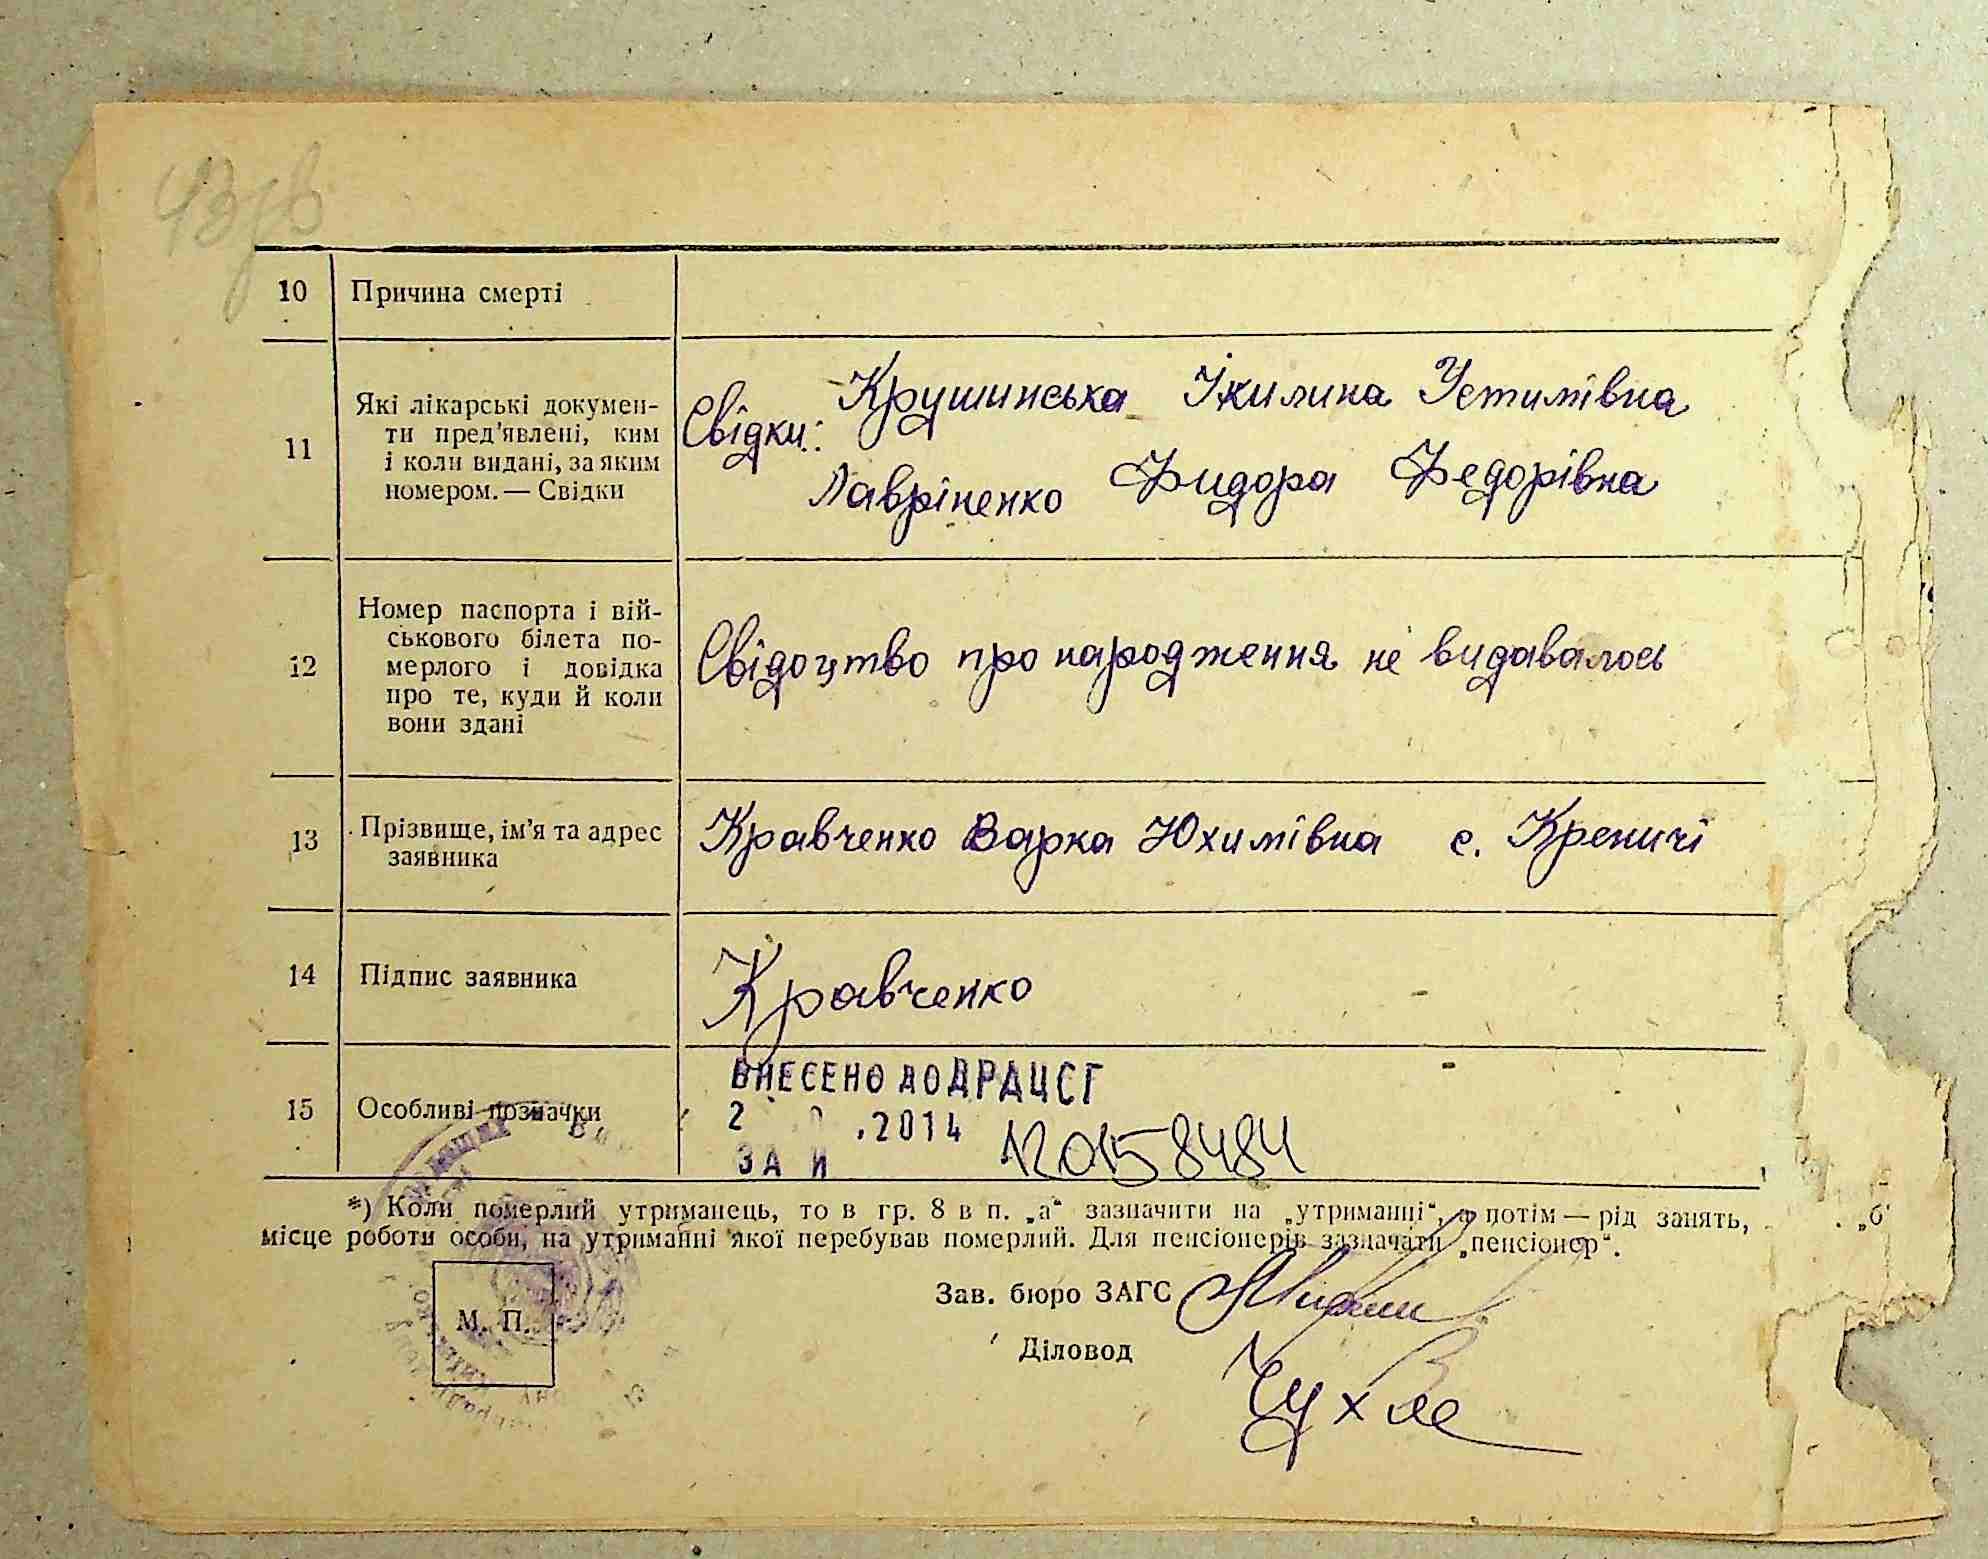 43
10 Причина смерті
11 Які лікарські докумен-
ти пред'явлені, ким
і коли видані, за яким
номером.— Свідки
Свідки: Крушинська Ікилина Устимівна
Лавріненко Фидора Федорівна
12 Номер паспорта і вій-
ськового білета по-
мерлого і довідка
про те, куди й коли
вони здані
Свідоцтво про народження не видавалось
13 Прізвище, ім'я та адрес
заявника
Кравченко Варка Юхимівна с. Креничі
14 Підпис заявника
Кравченко
15 Особливі позначки
ВНЕСЕНО ДО ДРАЦСГ
2 .2014
ЗА № 120158484
*) Коли померлий утриманець, то в гр. 8 в п. „а“ зазначити на „утриманні“, а потім — рід занять, „б
місце роботи особи, на утриманні якої перебував померлий. Для пенсіонерів зазначати „пенсіонер“.
М. П.
Зав. бюро ЗАГС
Діловод